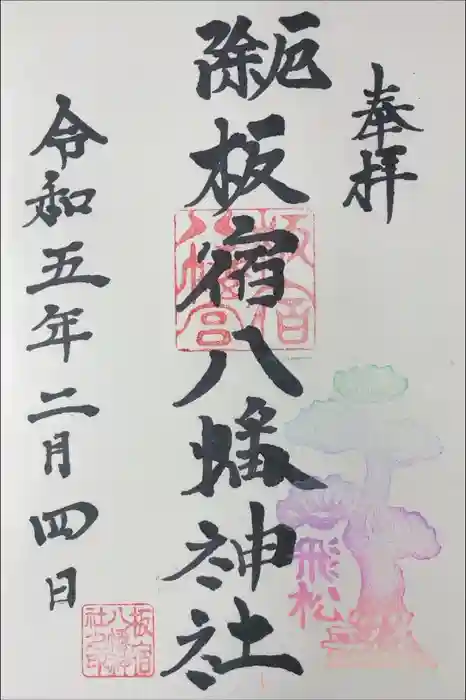 奉拝
厄除
板宿八幡神社
板宿八幡宮
飛松
令和五年二月四日
板宿八幡神社之印